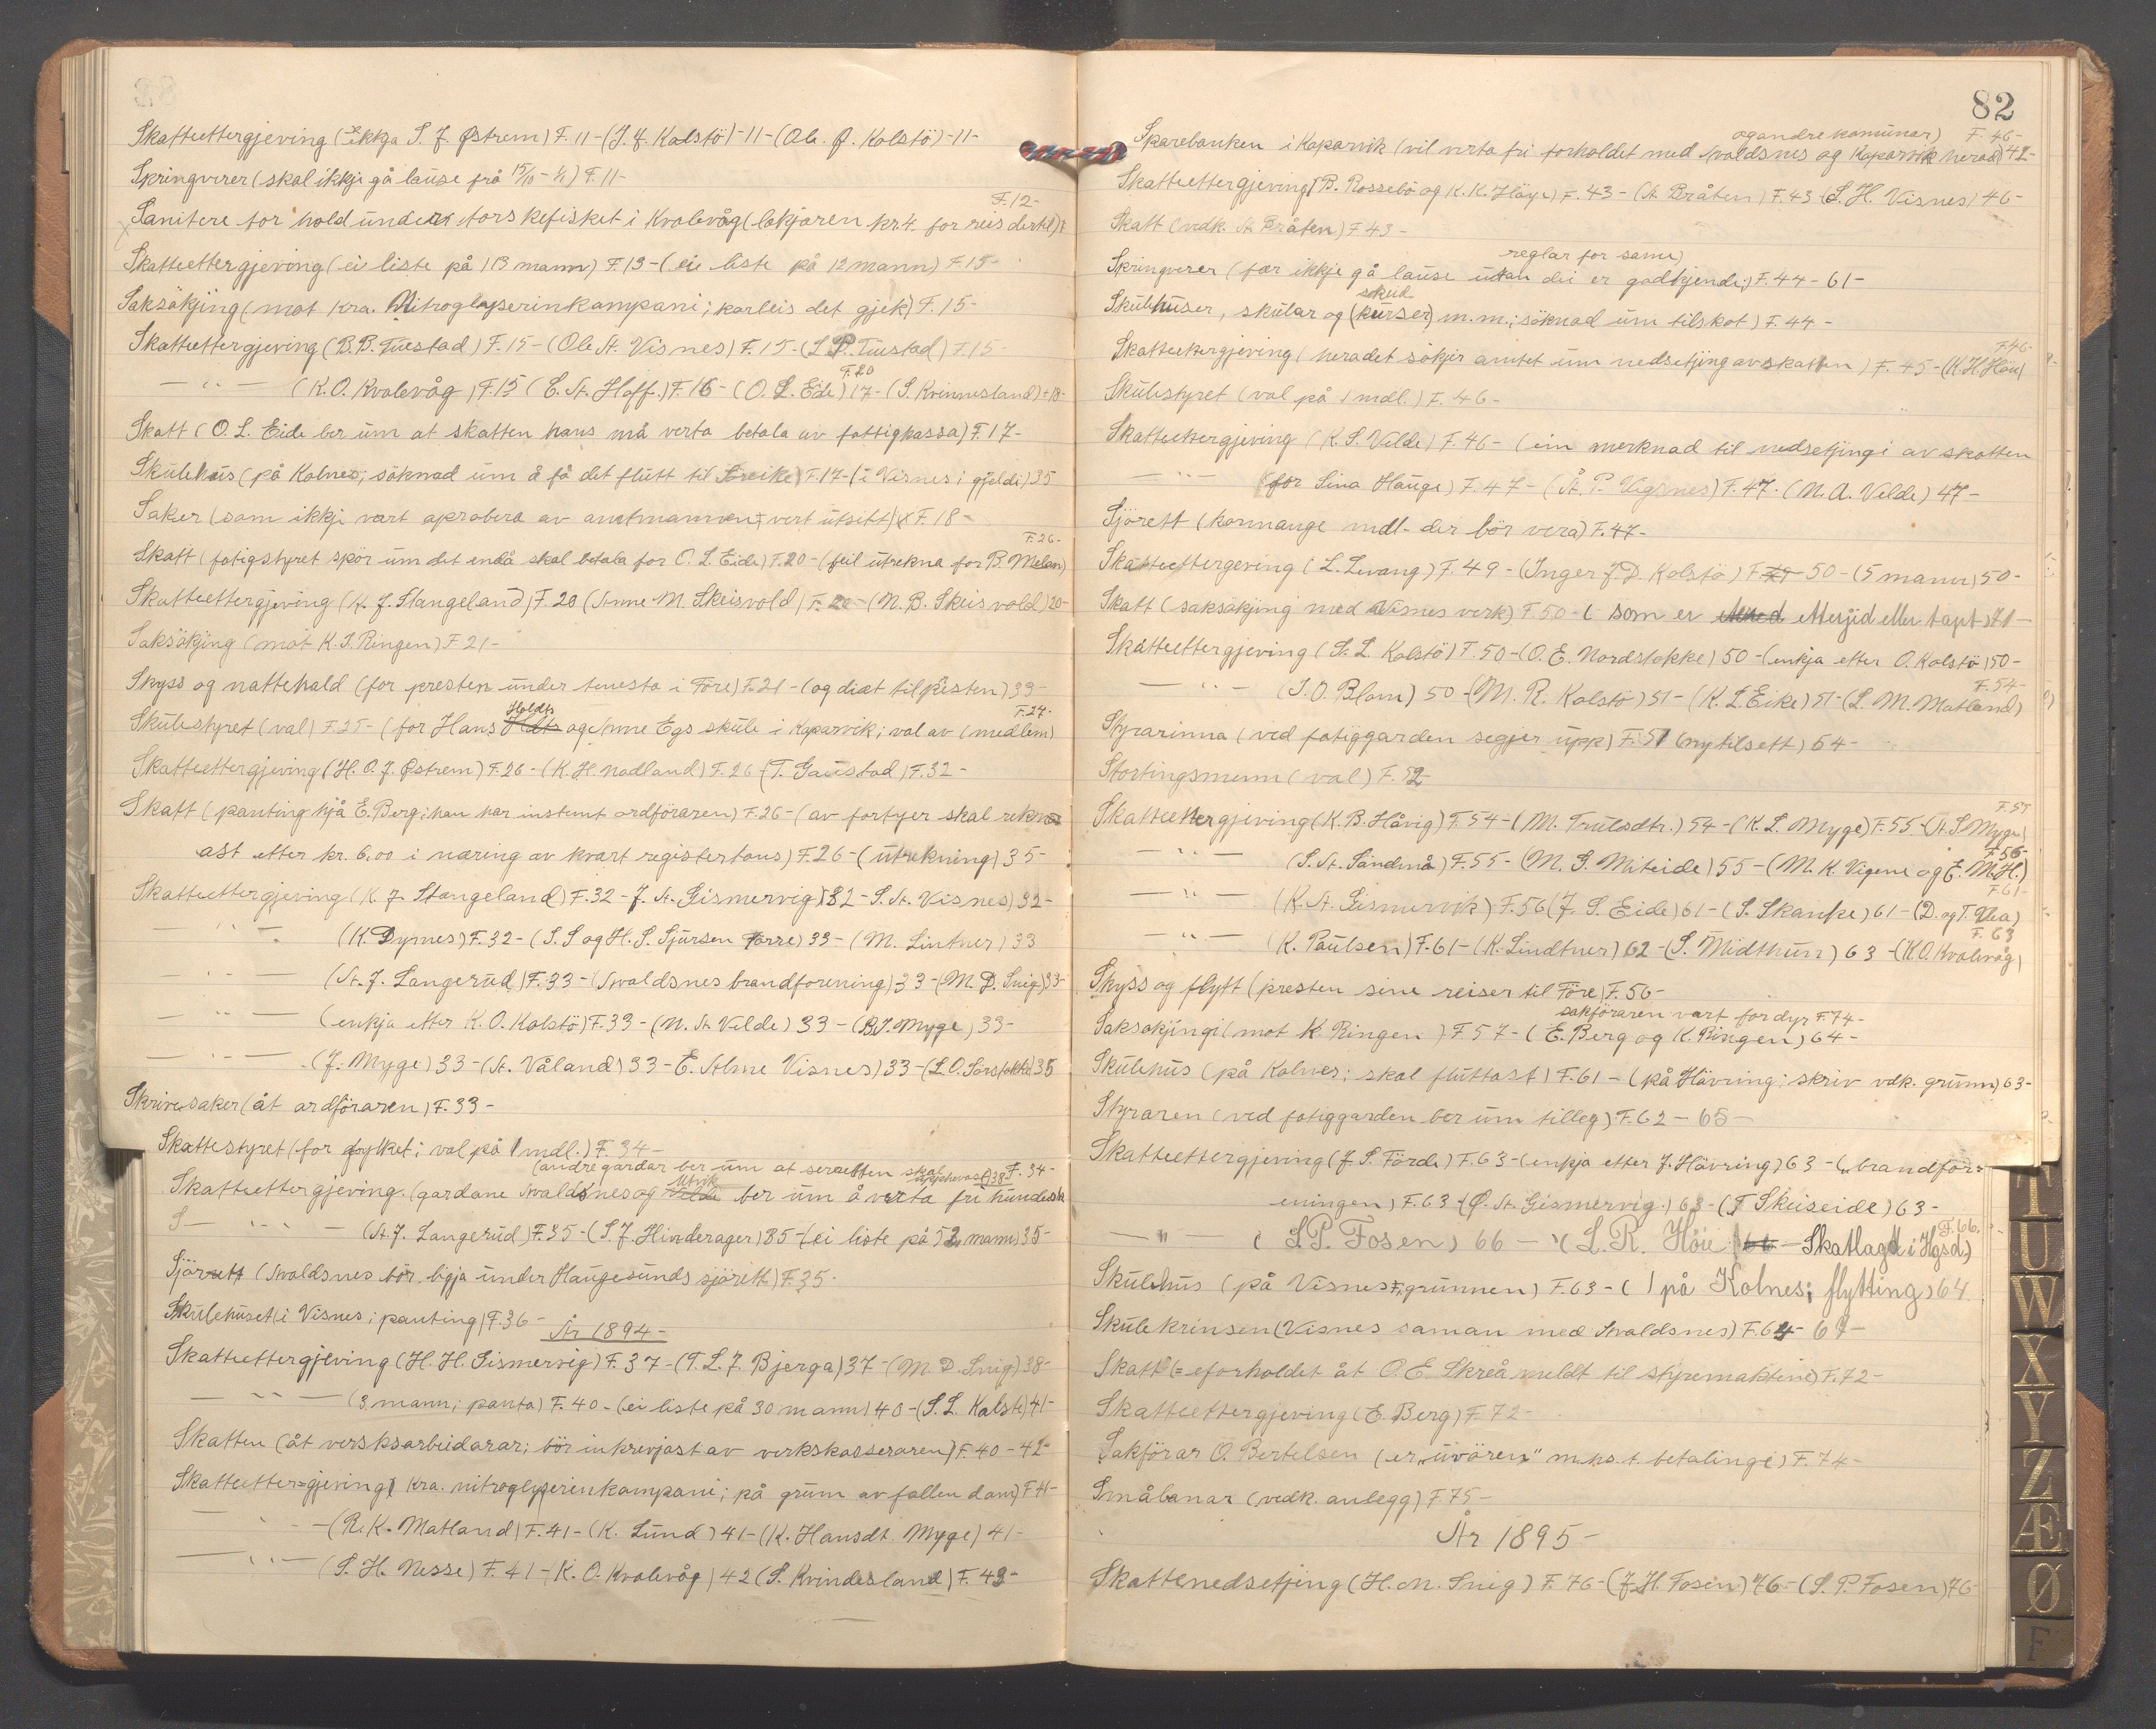 Skatteettergjeving (ekkja S. J. Østrem) F. 11 - (J. J. Kolstö) - 11 - (Ole. J. Kolstö) - 11 -
Springverer (skal ikkje gå lause frå 15/10 - ) F. 11 -
F. 12 -
Sanitere for hold under torskefisket i Kvalevåg (lækjaren kr. 4. for reis dertil)
Skatteettergjeving (ei liste på 113 mann) F. 13 - (ei liste på 12 mann) F. 15 -
Saksökjing (mot Kra. Nitroglyserinkompani; korleis det gjek) F. 15 -
Skatteettergjeving (B. B. Tuestad) F. 15 - (Ole A. Visnes) F. 15 - (L. P. Tuestad) F. 15 -
F. 20
— " — (K. O. Kvalevåg) F. 15 (E. A. Hoff.) F. 16 - (O. L. Eide) 17 - (S. Kvinnesland) - 18 -
Skatt (O. L. Eide ber um at skatten hans må verta betala av fattigkassa) F. 17 -
Skulehus (på Kolnes; söknad um å få det flutt til Kreike) F. 17 - (i Visnes i gjeldi) 35
Saker (som ikkje vart aprobera av amtmannen; vert utsett) F. 18 -
F. 26 -
Skatt (fatigstyret spör um det endå skal betala for O. L. Eide) F. 20 - (feil utrekna for B. Melan)
Skatteettergjeving (K. J. Stangeland) F. 20 (Anne M. Skeisvold) F. 20 - (N. B. Skeisvold) 20 -
Saksökjing (mot K. S. Ringen) F. 21 -
Skyss og nattehald (for presten under tenesta i Före) F. 21 - (og diæt til presten) 33 -
Holdts F. 27 -
Skulestyret (val) F. 25 - (for Hans og Anne Egs skule i Kopervik; val av 1 medlem)
Skatteettergjeving (H. O. J. Østrem) F. 26 - (K. H. Nadland) F. 26 (T. Gaustad) F. 32 -
Skatt (panting hjå E. Berg; han har instemt ordföraren) F. 26 - (av fortyer skal rekn
ast etter kr. 6.00 i næring av kvart registertons) F. 26 - (utrekning) 35 -
Skatteettergjeving (K. J. Stangeland) F. 32 - J. A. Gismervig) 32 - S. A. Visnes) 32 -
— " — (K. Dyrnes) F. 32 - (S. S og H. S. Sjursen Torre) 33 - (M. Lintner) 33
— " — (A. J. Langerud) F. 33 - (Avaldsnes brandforening) 33 - (M. D. Snig) 33 -
— " — (enkja etter K. O. Kolstö) F. 33 - (N. A. Velde) 33 - (B. J. Myge) 33 -
— " — (J. Myge) 33 - (A. Våland) 33 - E. Alme Visnes) 33 - (L. O. Sörstokke) 35
Skrivesaker (åt ordföraren) F. 33 -
Skattestyret (for fylket; val på 1 mdl.) F. 34 -
(andre gardar ber um at seraetten skal upphevast) 38 F. 34 -
Utvik
Skatteettergjeving (gardane Avaldsnes og ber um å verta fri hundesk
S — " — (A. J. Langerud) F. 35 - (S. J. Hinderager) 35 - (ei liste på 52 mann) 35 -
Sjörett (Avaldsnes bör ligja under Haugesunds sjörett) F. 35 -
Skulehuset (i Visnes; panting) F. 36 -
År 1894 -
Skatteettergjeving (H. H. Gismervig) F. 37 - (T. L. J. Bjerga) 37 - (M. D. Snig) 38 -
— " — (3 mann; panta) F. 40 - (ei liste på 30 mann) 40 - (S. L. Kolstö) 41 -
Skatten (åt versksarbeidarar; bör inkrevjast av verkskasseraren) F. 40 - 42 -
Skatteetter=gjeving (Kra. nitroglyserinkompani; på grunn av fallen dom) F. 41 -
— " — (R. K. Matland) F. 41 - (K. Lund) 41 - (K. Hansdt. Myge) 41 -
— " — (S. H. Nesse) F. 41 - (K. O. Kvalevåg) 42 (S. Kvindesland) F. 43 -
82
og andre komunar) F. 46 -
Sparebanken i Kopervik (vil verta fri forholdet med Avaldsnes og Kopervik herad) 42 -
Skatteettergjeving (B. Rossebö og K. K. Höye) F. 43 - (A. Bråten) F. 43 (S. H. Visnes) 46 -
Skatt (vedk. A. Bråten) F. 43 -
reglar for same)
Springverer (fær ikkje gå lause utan dei er godkjende;) F. 44 - 61 -
skeid
Skulehuser, skular og (kurser) m. m.; söknad um tilskot) F. 44 -
F. 46 -
Skatteettergjeving (heradet sökjer amtet um nedsetjing av skatten) F. 45 - (K. H. Höie)
Skulestyret (val på 1 mdl.) F. 46 -
Skatteettergjeving (K. S. Velde) F. 46 - (ein merknad til nedsetjingi av skatten
— " — for Sina Hauge) F. 47 - (Å. P. Vignes) F. 47. (N. A. Velde) 47 -
Sjörett (kor mange mdl. der bör vera) F. 47 -
Skatteettergeving (L. Levang) F. 49 - (Inger J. D. Kolstö) F. 50 - (5 mann) 50 -
Skatt (saksökjing med Visnes verk) F. 50 - (som er ettergjed eller tapt) 71 -
Skatteettergjeving (S. L. Kolstö) F. 50 - (O. E. Nordstokke) 50 - (enkja etter O. Kolstö) 50 -
F. 54 -
— " — (J. O. Blom) 50 - (M. R. Kolstö) 51 - (K. L. Eike) 51 - (L. M. Matland)
Styrarinna (ved fatiggarden segjer upp) F. 51 (ny tilsett) 54 -
Stortingsmenn (val) F. 52 -
F. 55
Skatteettergjeving (K. B. Håvig) F. 54 - (M. Trulsdtr.) 54 - (K. L. Myge) F. 55 - (A. S. Myge)
F. 56 -
— " — (S. A. Sandmå) F. 55 - (M. G. Miteide) 55 - (M. K. Vigene og E. M. H.)
F. 61 -
— " — (K. A. Gismervik) F. 56 (J. S. Eide) 61 - (S. Skanke) 61 - (D. og T. Vea)
F. 63
— " — (K. Paulsen) F. 61 - (K. Lindtner) 62 - (S. Midthun) 63 - (K. O. Kvalevåg)
Skyss og flytt (presten sine reiser til Före) F. 56 -
sakföraren vart for dyr F. 74 -
Saksokjingi (mot K. Ringen) F. 57 - (E. Berg og K. Ringen) 64 -
Skulehus (på Kolnes; skal fluttast) F. 61 - (på Hävring; skriv vdk. grunn) 63 -
Styraren (ved fatiggarden ber um tilleg) F. 62 - 65 -
Skatteettergjeving (J. S. Förde) F. 63 - (enkja etter J. Hävring) 63 - („brandfor=
eningen) F. 63 - (Ø. A. Gismervig.) 63 - (T Skeiseide) 63 -
F. 66.
— " — (S. P. Fosen) 66 — (L. R. Höie - Skatlagdt i Hgsd)
Skulehus (på Visnes; grunnen) F. 63 - (på Kolnes; flytting) 64
Skulekrinsen (Visnes saman med Avaldsnes) F. 64 - 67 -
Skatt (=eforholdet åt O. E. Skreå meldt til styremaktene) F. 72 -
Skatteettergjeving (E. Berg) F. 72 -
Sakförar O. Bertelsen (er „uvören" m. ho. t. betalingi) F. 74 -
Småbanar (vedk. anlegg) F. 75 -
År 1895 -
Skattenedsetjing (H. M. Snig) F. 76 - (J. H. Fosen) 76 - (S. P. Fosen) 76 -
T
U
W
X
Y
Z
Æ
Ø